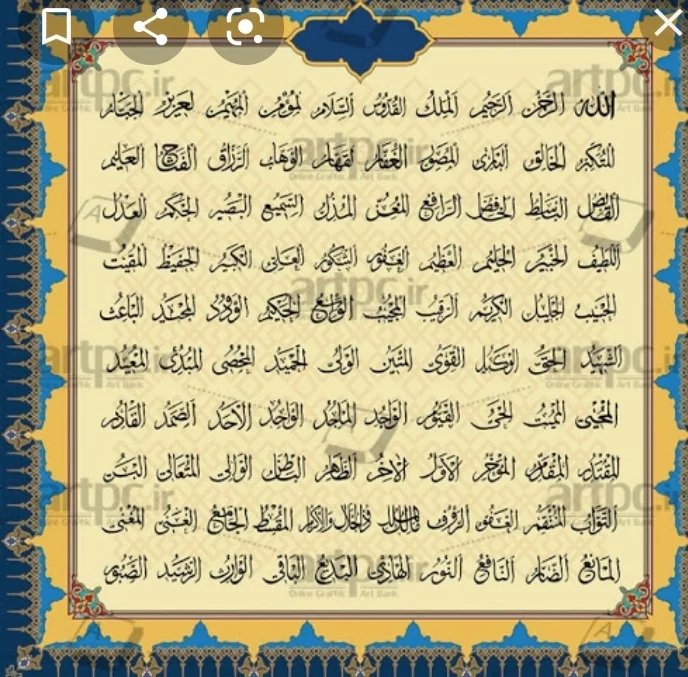 الله الرحمن الرحيم الملك القدوس السلام المؤمن المهيمن العزيز الجبار
المتكبر الخالق البارئ المصور الغفار القهار الوهاب الرزاق الفتاح العليم
القابض الباسط الخافض الرافع المعز المذل السميع البصير الحكم العدل
اللطيف الخبير الحليم العظيم الغفور الشكور العلي الكبير الحفيظ المقيت
الحسيب الجليل الكريم الرقيب المجيب الواسع الحكيم الودود المجيد الباعث
الشهيد الحق الوكيل القوي المتين الولي الحميد المحصي المبدئ المعيد
المحيي المميت الحي القيوم الواجد الماجد الواحد الأحد الصمد القادر
المقتدر المقدم المؤخر الأول الآخر الظاهر الباطن الوالي المتعالي البر
التواب المنتقم العفو الرؤوف مالك الملك ذو الجلال والإكرام المقسط الجامع الغني المغني
المانع الضار النافع النور الهادي البديع الباقي الوارث الرشيد الصبور
artpc.ir